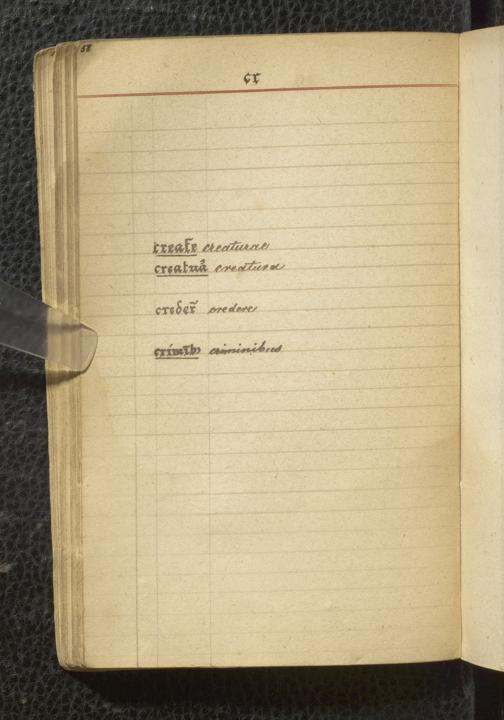 58
cr
creat̃e creaturae
creatuã creatura
creder̃ credere
crimīb criminibus